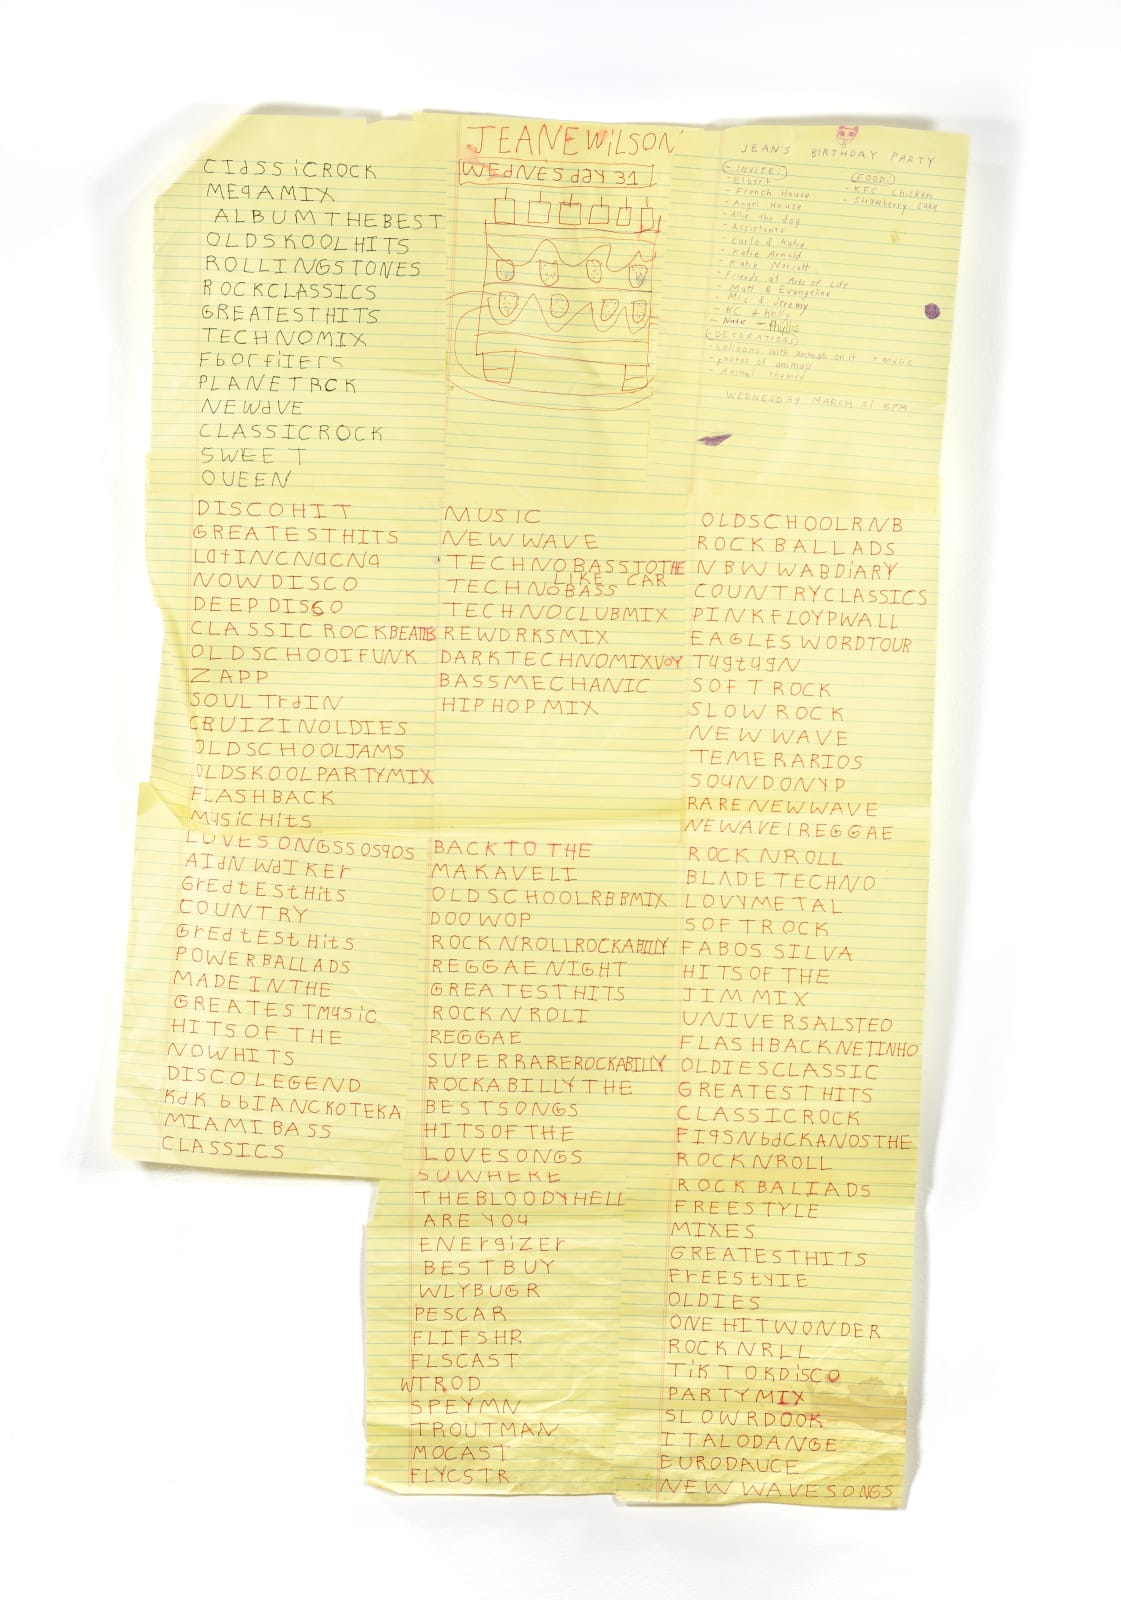 CIassiCROCK
MEgAMIX
ALBUMTHEBEST
OLDSKOOLHITS
ROLLINGSTONES
ROCKCLASSICS
GREATESTHITS
TECHNOMIX
FborfiIErs
PLANETRCK
NEWaVE
CLASSICROCK
SWEET
QUEEN
JEANEWiLSON
WEdNESdaY 31
JEAN'S BIRTHDAY PARTY
INVITE:
- Elbert
- French House
- Angel House
- Allie the dog
- Assistants
- Carlo & Katie
- Katie Arnold
- Katie Norcott
- Friends at Arts of Life
- Matt & Evangeline
- Mic & Jeremy
- KC + Kelly
- Nate - Phyllis
FOOD:
- KFC Chicken
- Strawberry Cake
DECORATIONS
- balloons with animals on it + Music
- photos of animals
- Animal themed
WEDNESDAY MARCH 31 5PM
DISCOHIT
GREATESTHITS
LatINCNaCNa
NOWDISCO
DEEPDISGO
CLASSIC ROCKBEATTLES
OLDSCHOOIFUNK
ZAPP
SOULTraIN
CRUIZINOLDIES
OLDSCHOOLJAMS
OLDSKOOLPARTYMIX
FLASHBACK
MUSiCHitS
MUSIC
NEWWAVE
TECHNOBASSTOTHE
LIKE CAR
TECHNOBASS
TECHNOCLUBMIX
REWDRKSMIX
DARKTECHNOMIXVOY
BASSMECHANIC
HIPHOPMIX
OLDSCHOOLRNB
ROCKBALLADS
NBWWABDiARY
COUNTRYCLASSICS
PINKFLOYPWALL
EAGLESWORDTOUR
TUgtUgN
SOFTROCK
SLOWROCK
NEWWAVE
TEMERARIOS
SOUNDONYP
RARENEWWAVE
NEWAVEIREGGAE
LOVESONGSSOS90S
AIaNWaIKEr
GrEatEStHitS
COUNTRY
GrEatEStHitS
POWERBALLADS
MADEINTHE
GREATESTMUSiC
HITSOFTHE
NOWHITS
DISCOLEGEND
KaKbbIANCKOTEKA
MIAMIBASS
CLASSICS
BACKTOTHE
MAKAVELI
OLDSCHOOLRBBMIX
DOOWOP
ROCKNROLLROCKABILLY
REGGAENIGHT
GREATESTHITS
ROCKNROLI
REGGAE
SUPERRAREROCKABILLY
ROCKABILLYTHE
BESTSONGS
HITSOFTHE
LOVESONGS
SOWHERE
THEBLOODYHELL
AREYOU
ENErgiZEr
BESTBUY
WLYBUGR
PESCAR
FLIFSHR
FLSCAST
WTROD
SPEYMN
TROUTMAN
MOCAST
FLYCSTR
ROCKNROLL
BLADETECHNO
LOVYMETAL
SOFTROCK
FABOSSILVA
HITSOFTHE
JIMMIX
UNIVERSALSTEO
FLASHBACKNETINHO
OLDIESCLASSIC
GREATESTHITS
CLASSICROCK
FI9SNbaCKANOSTHE
ROCKNROLL
ROCKBALIADS
FREESTYLE
MIXES
GREATESTHITS
FrEEStYIE
OLDIES
ONEHITWONDER
ROCKNRLL
TiKTOKDiSCO
PARTYMIX
SLOWRDOOK
ITALODANGE
EURODAUCE
NEWWAVESONGS